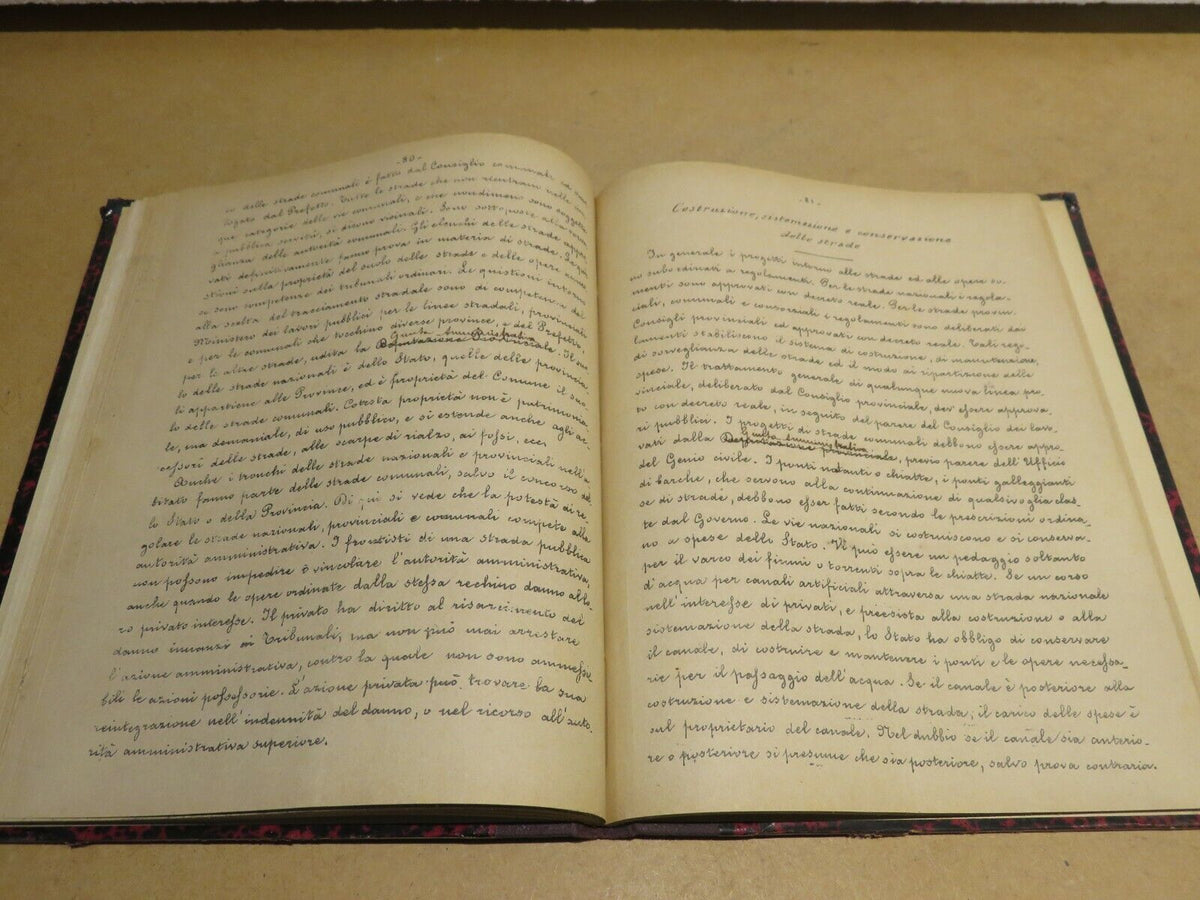 - 80 -
co delle strade comunali è fatto dal Consiglio comunale ed omo-
logato dal Prefetto. Tutte le strade che non rientrano nelle cin-
que categorie delle vie comunali, e che nondimeno sono soggette
a pubblica servitù, si dicono vicinali. Sono sottoposte alla vigi-
glianza delle autorità comunali. Gli elenchi delle strade appro-
vati definitivamente fanno prova in materia di strade. Le que-
stioni sulla proprietà del suolo delle strade e delle opere annes-
se sono competenza dei tribunali ordinari. Le questioni intorno
alla scelta del tracciamento stradale sono di competenza del
Ministero dei lavori pubblici per le linee stradali, provinciali
e per le comunali che tocchino diverse province, e del Prefetto
per le altre strade, udita la Deputazione Provinciale. Il suo
Giunta Amministrativa
lo delle strade nazionali è dello Stato, quelle delle provincia-
li appartiene alle Province, ed è proprietà del Comune il suo-
lo delle strade comunali. Cotesta proprietà non è patrimonia-
le, ma demaniale, di uso pubblico, e si estende anche agli ac-
cessori delle strade, alle scarpe di rialzo, ai fossi, ecc.
Anche i tronchi delle strade nazionali e provinciali nell'a-
bitato fanno parte delle strade comunali, salvo il concorso del-
lo Stato o della Provincia. Di qui si vede che la potestà di re-
golare le strade nazionali, provinciali e comunali compete alla
autorità amministrativa. I frontisti di una strada pubblica
non possono impedire o vincolare l'autorità amministrativa,
anche quando le opere ordinate dalla stessa rechino danno al lo-
ro privato interesse. Il privato ha diritto al risarcimento del
danno innanzi ai Tribunali, ma non può mai arrestare
l'azione amministrativa, contro la quale non sono ammessi-
bili le azioni possessorie. L'azione privata può trovare la sua
reintegrazione nell'indennità del danno, o nel ricorso all'auto-
rità amministrativa superiore.
- 81 -
Costruzione, sistemazione e conservazione
delle strade
In generale i progetti intorno alle strade ed alle opere so-
no subordinati a regolamenti. Per le strade nazionali i regola-
menti sono approvati con decreto reale. Per le strade provin-
ciali, comunali e consorziali i regolamenti sono deliberati dai
Consigli provinciali ed approvati con decreto reale. Tali rego-
lamenti stabiliscono il sistema di costruzione, di manutenzione,
di sorveglianza delle strade ed il modo di ripartizione delle
spese. Il trattamento generale di qualunque nuova linea pro-
vinciale, deliberato dal Consiglio provinciale, dev'essere approva-
to con decreto reale, in seguito del parere del Consiglio dei lavo-
ri pubblici. I progetti di strade comunali debbono essere appro-
vati dalla Deputazione provinciale, previo parere dell'Ufficio
Giunta Amministrativa
del Genio civile. I ponti natanti o chiatte, i ponti galleggianti
di barche, che servono alla continuazione di qualsivoglia clas-
se di strade, debbono esser fatti secondo le prescrizioni ordina-
te dal Governo. Le vie nazionali si costruiscono e si conserva-
no a spese dello Stato. Vi può essere un pedaggio soltanto
per il varco dei fiumi o torrenti sopra le chiatte. Se un corso
d'acqua per canali artificiali attraversa una strada nazionale
nell'interesse di privati, e preesista alla costruzione o alla
sistemazione della strada, lo Stato ha obbligo di conservare
il canale, di costruire e mantenere i ponti e le opere necessa-
rie per il passaggio dell'acqua. Se il canale è posteriore alla
costruzione e sistemazione della strada, il carico delle spese è
sul proprietario del canale. Nel dubbio se il canale sia anterio-
re o posteriore si presume che sia posteriore, salvo prova contraria.